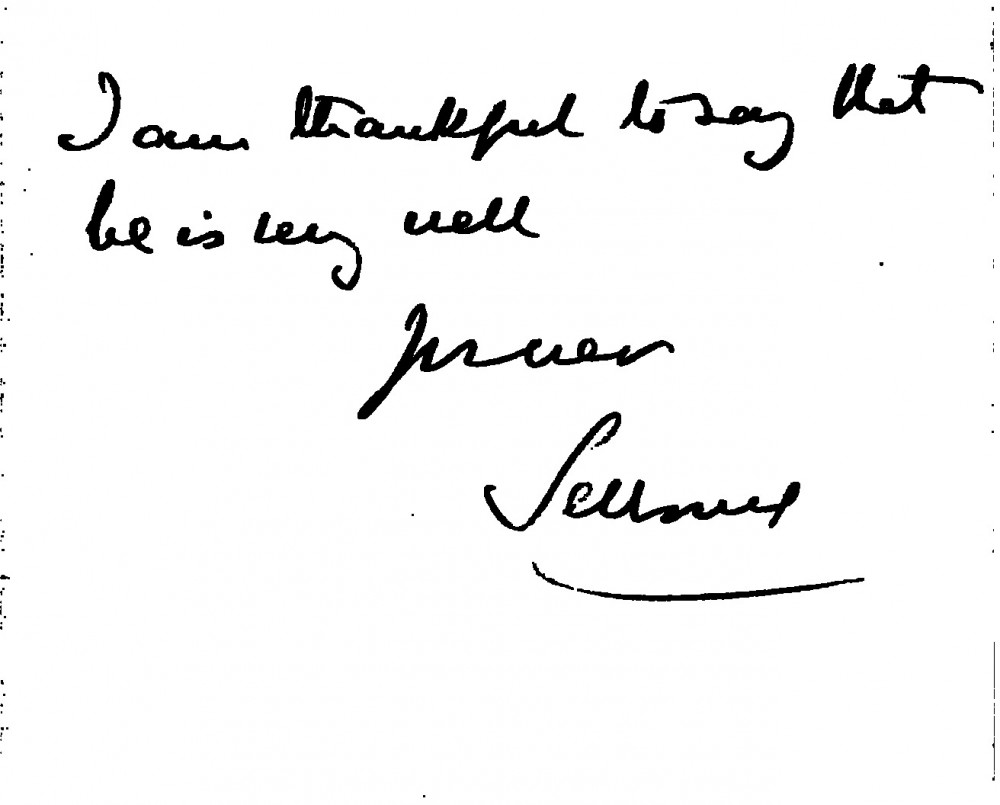 I am thankful to say that
he is very well
Yrs ever
Selborne